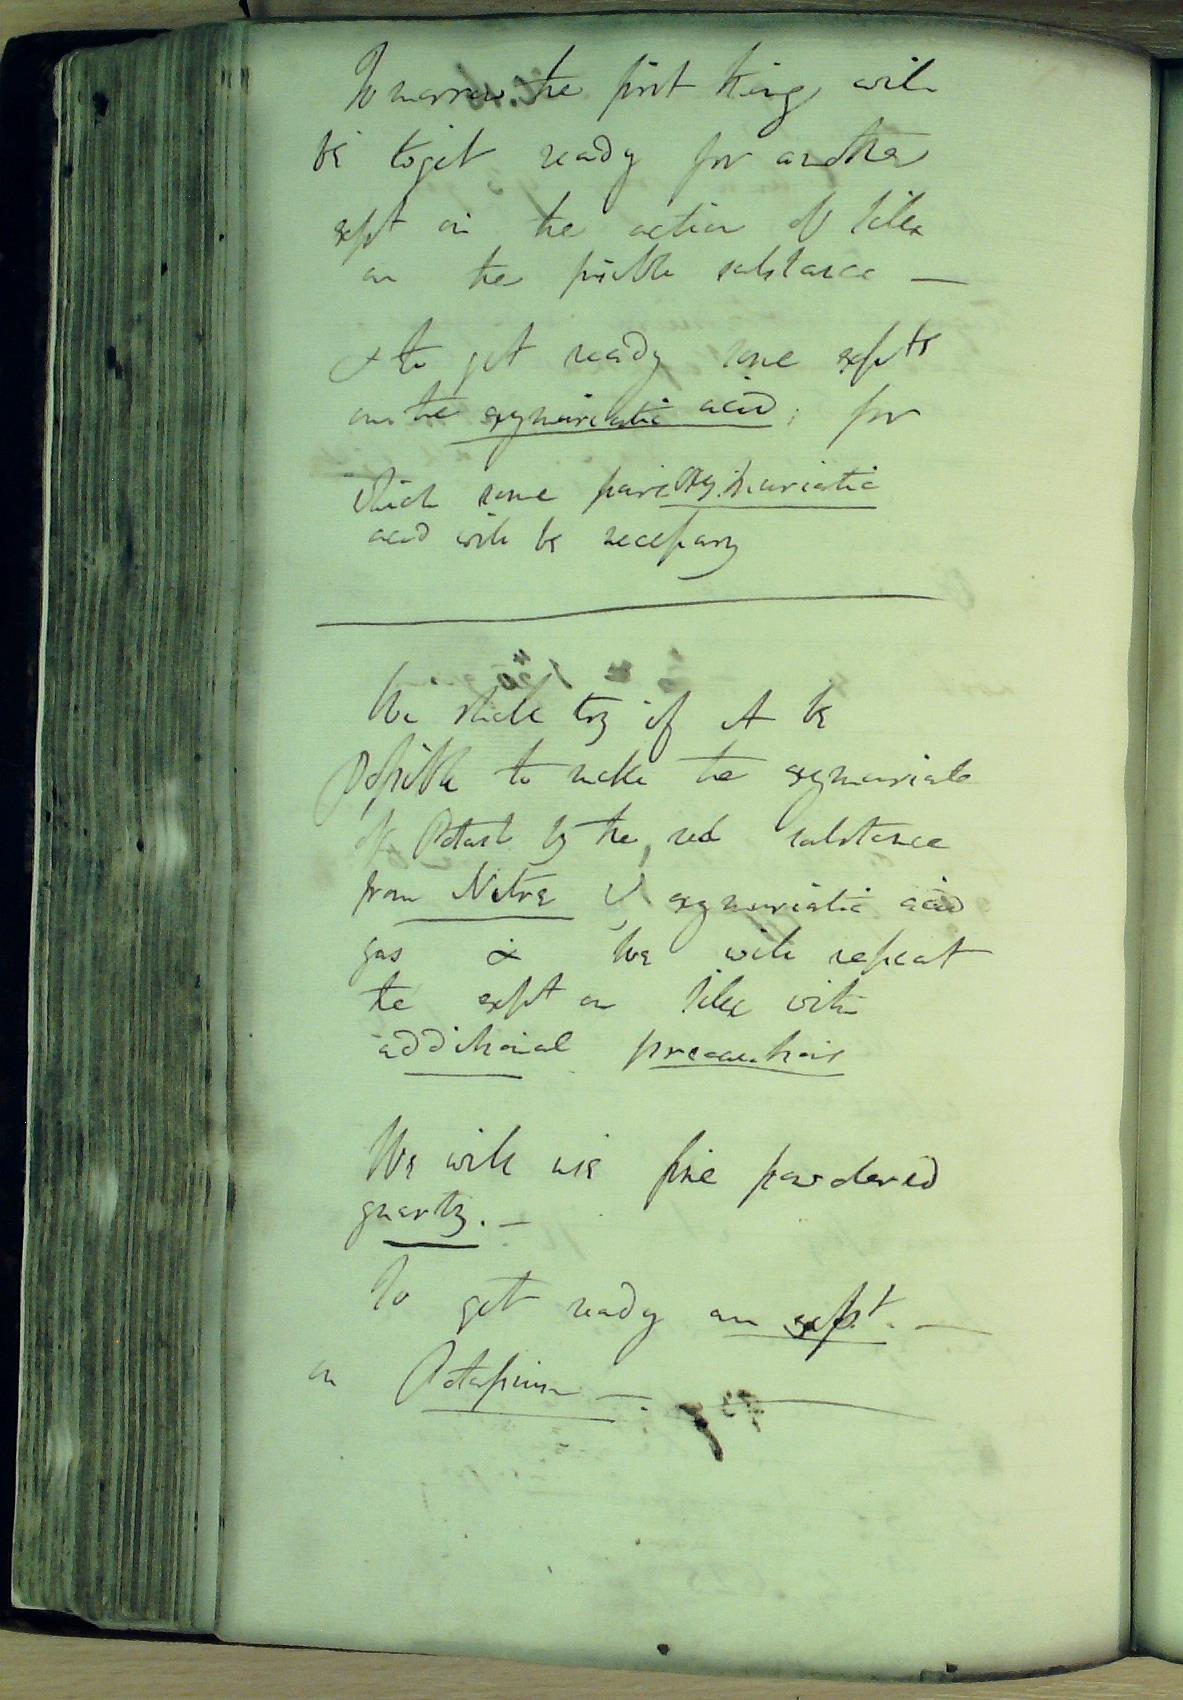 Tomorrow the first thing will
be to get ready for another
expt on the action of silex
on the fusible substance —
& to get ready some expts
on the oxymuriatic acid; for
which some pure oxymuriatic
acid will be necessary
We shall try if it be
Possible to make the oxymuriate
of Potash by the red substance
from Nitre & oxymuriatic acid
gas & we will repeat
the expt on silex with
additional precautions
We will use fine powdered
quartz. —
To get ready an expt. —
on Potassium —